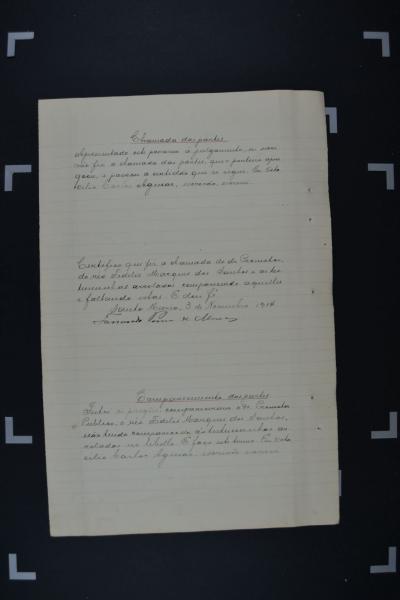 Chamada das partes
Apresentado este processo a julgamento, o
não fez a chamada das partes, que o porteiro apre
goou, e passou a certidão que se segue. Eu
Carlos Aguiar, escrivão, escrevi.
Certifico que fiz a chamada do Dr. Promotor,
do réo Fidelis Marques dos Santos e as tes
temunhas arroladas comparecendo aquelles
e faltando estas. E dou fé
3 de Novembro 1914
Comparecimento das partes
Feito o pregão, compareceram o Dr. Promotor
Publico, o réo Fidelis Marques dos Santos,
não tendo comparecido as testemunhas ar
roladas no libello. E faço este termo. Eu
Carlos Aguiar, escrivão escrevi